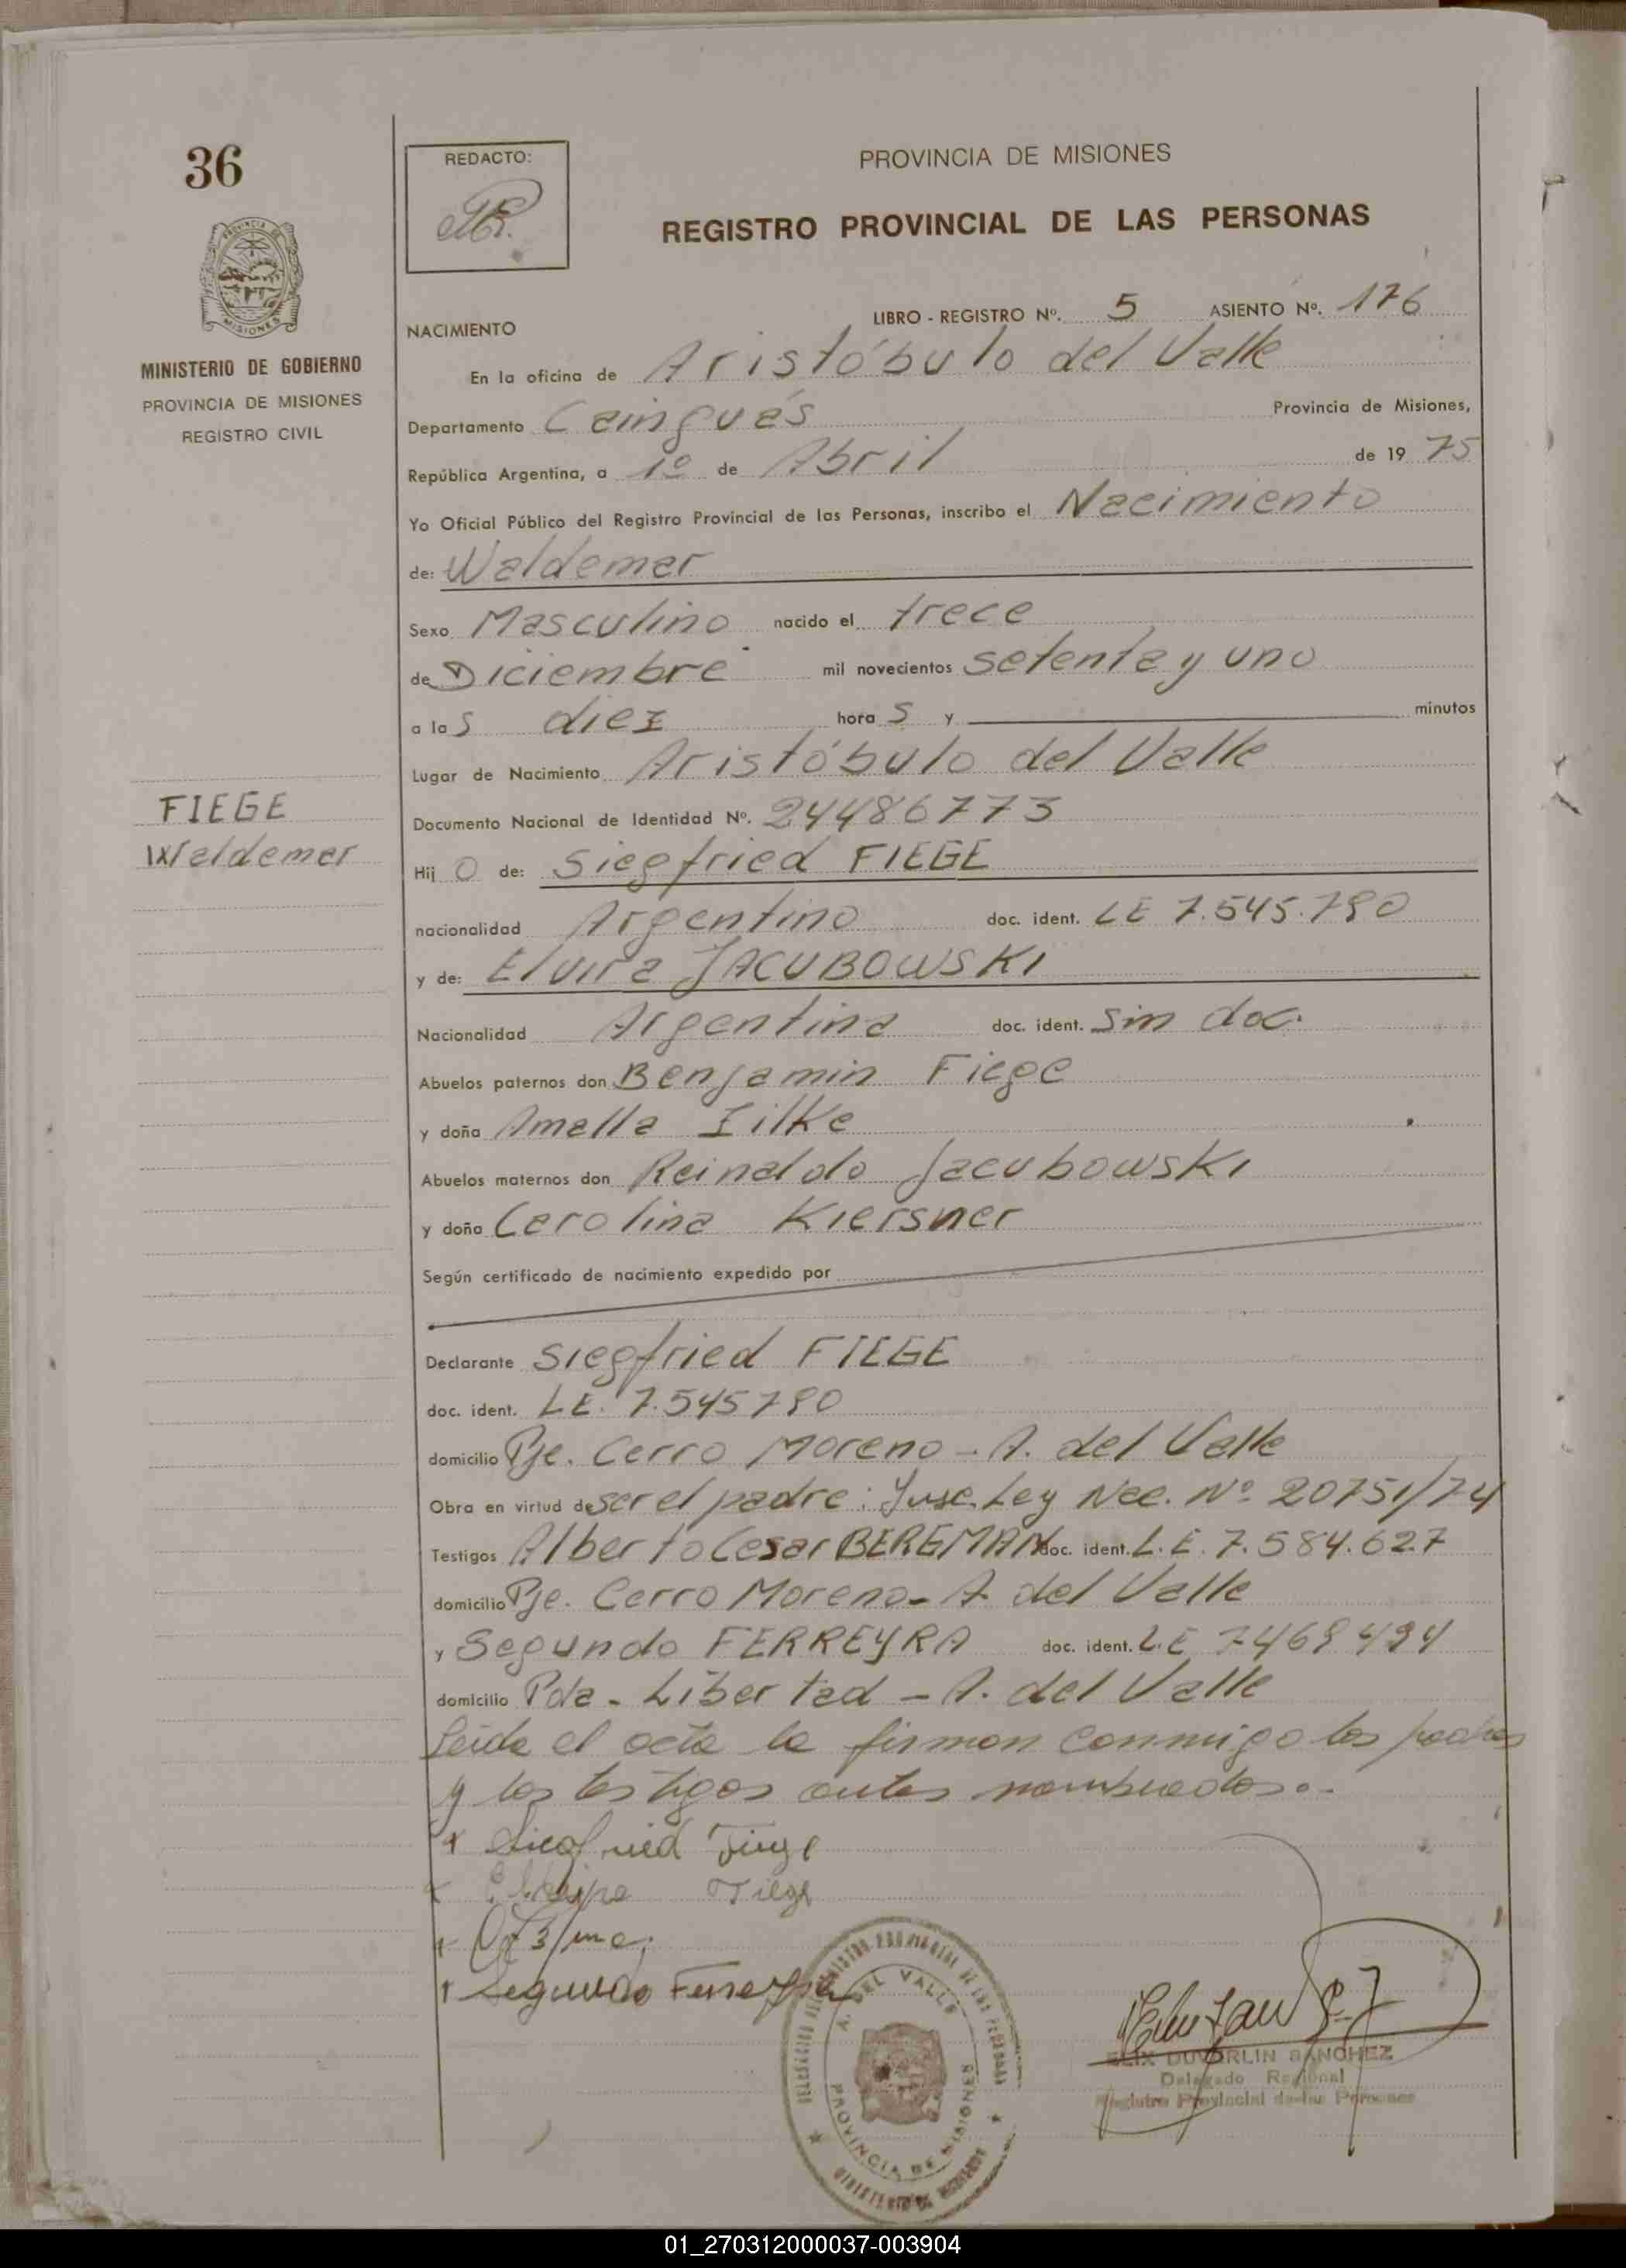 36
REDACTO:
PROVINCIA DE MISIONES
REGISTRO PROVINCIAL DE LAS PERSONAS
MISIONES
MINISTERIO DE GOBIERNO
PROVINCIA DE MISIONES
REGISTRO CIVIL
LIBRO - REGISTRO Nº. 5 ASIENTO Nº. 176
NACIMIENTO
En la oficina de Aristóbulo del Valle
Departamento Cainguás Provincia de Misiones,
República Argentina, a 1º de Abril de 19 75
Yo Oficial Público del Registro Provincial de las Personas, inscribo el Nacimiento
de: Waldemar
Sexo Masculino nacido el trece
de Diciembre mil novecientos setenta y uno
a la s diez hora s y minutos
Lugar de Nacimiento Aristóbulo del Valle
Documento Nacional de Identidad Nº. 24486773
FIEGE
Waldemar
Hij o de: Siegfried FIEGE
nacionalidad Argentino doc. ident. LE 7.545.790
y de: Elvira JACUBOWSKI
Nacionalidad Argentina doc. ident. sin doc.
Abuelos paternos don Benjamin Fiege
y doña Amalla Zilke
Abuelos maternos don Reinaldo Jacubowski
y doña Carolina Kiersner
Según certificado de nacimiento expedido por
Declarante Siegfried FIEGE
doc. ident. LE. 7.545790
domicilio Pje. Cerro Moreno - A. del Valle
Obra en virtud de ser el padre: Ley Nac. Nº 20751/74
Testigos Alberto Cesar BERGMAN doc. ident. L.E. 7.584.627
domicilio Pje. Cerro Moreno - A. del Valle
y Segundo FERREYRA doc. ident. L.E 7469494
domicilio Pda - Libertad - A. del Valle
Leida el acta la firman conmigo los padres
y los testigos antes nombrados.-
Siegfried Fiege
Fiege
Segundo Ferreyra
A. DEL VALLE
PROVINCIA DE MISIONES
DUVARLIN SANCHEZ
Delegado Regional
Registro Provincial de las Personas
01_270312000037-003904